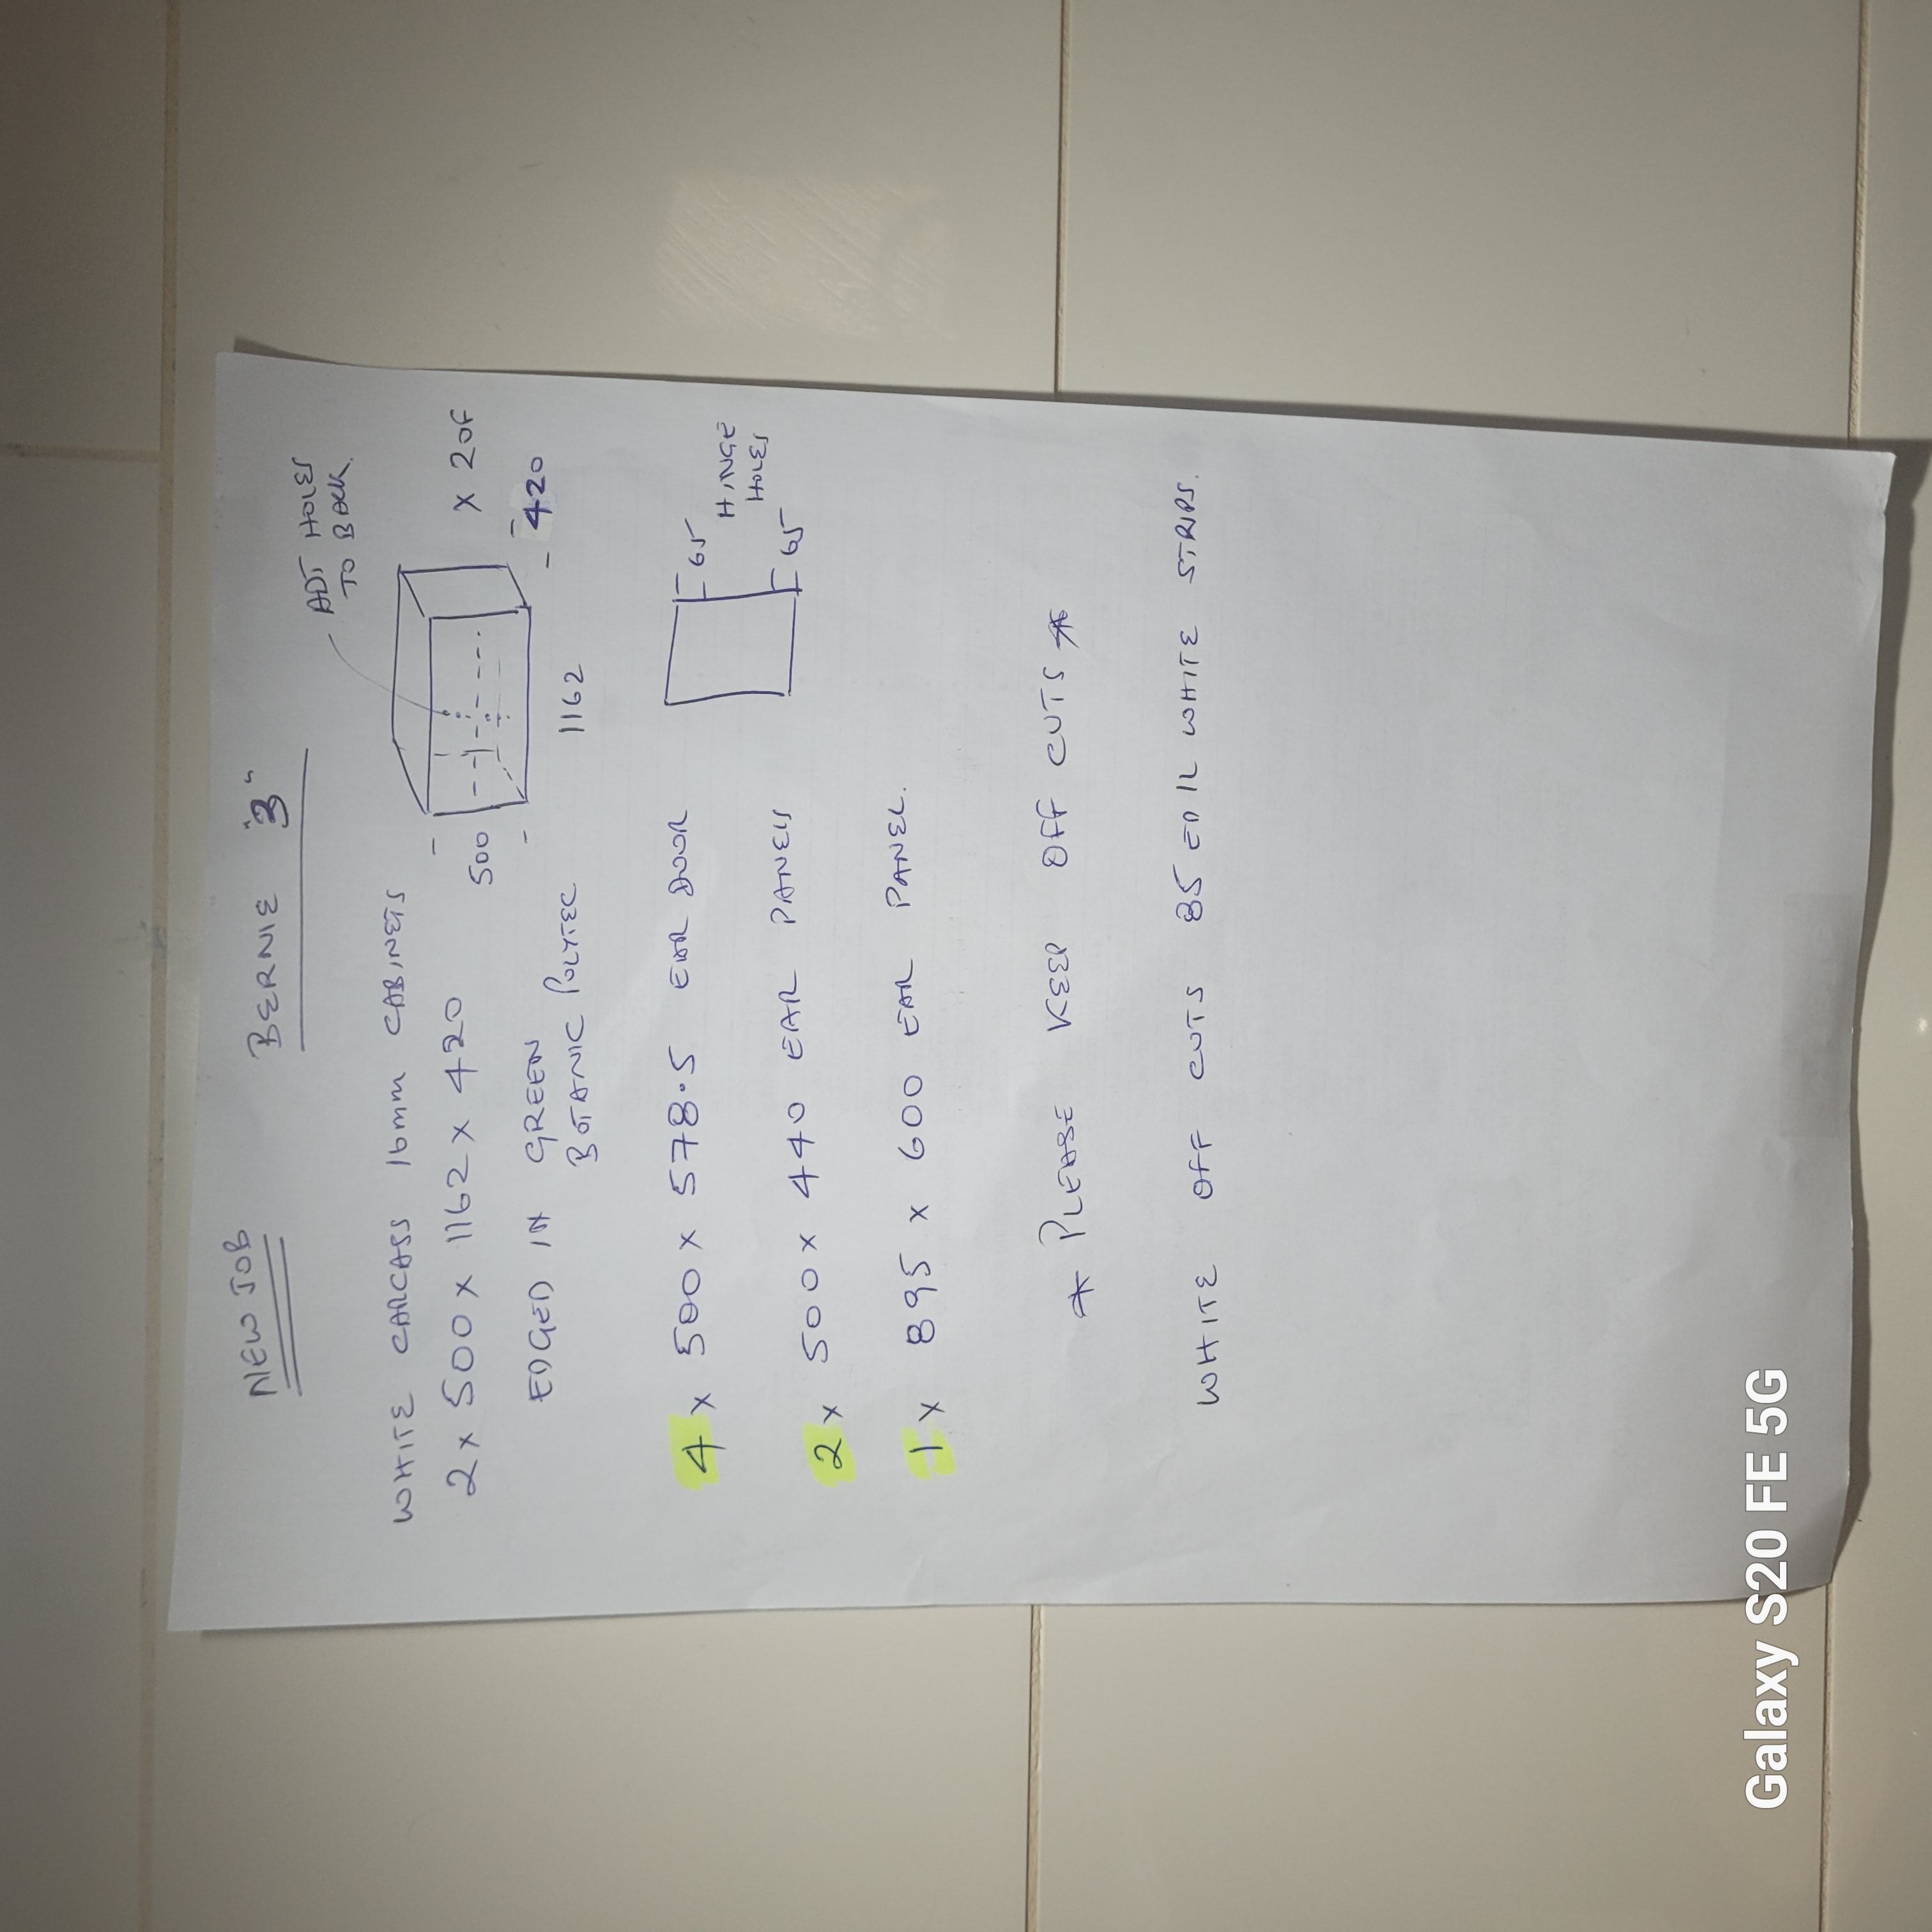 NEW JOB BERNIE "B"
ADJ HOLES
TO BACK.
WHITE CARCASS 16mm CABINETS
2 x 500 x 1162 x 420
500
x 2 OF
420
1162
EDGED IN GREEN
BOTANIC POLYTEC
4 x 500 x 578.5 EAR DOOR
65
HINGE
HOLES
65
2 x 500 x 440 EAR PANELS
1 x 895 x 600 EAR PANEL.
* PLEASE KEEP OFF CUTS *
WHITE OFF CUTS 85 ED 1L WHITE STRIPS.
Galaxy S20 FE 5G